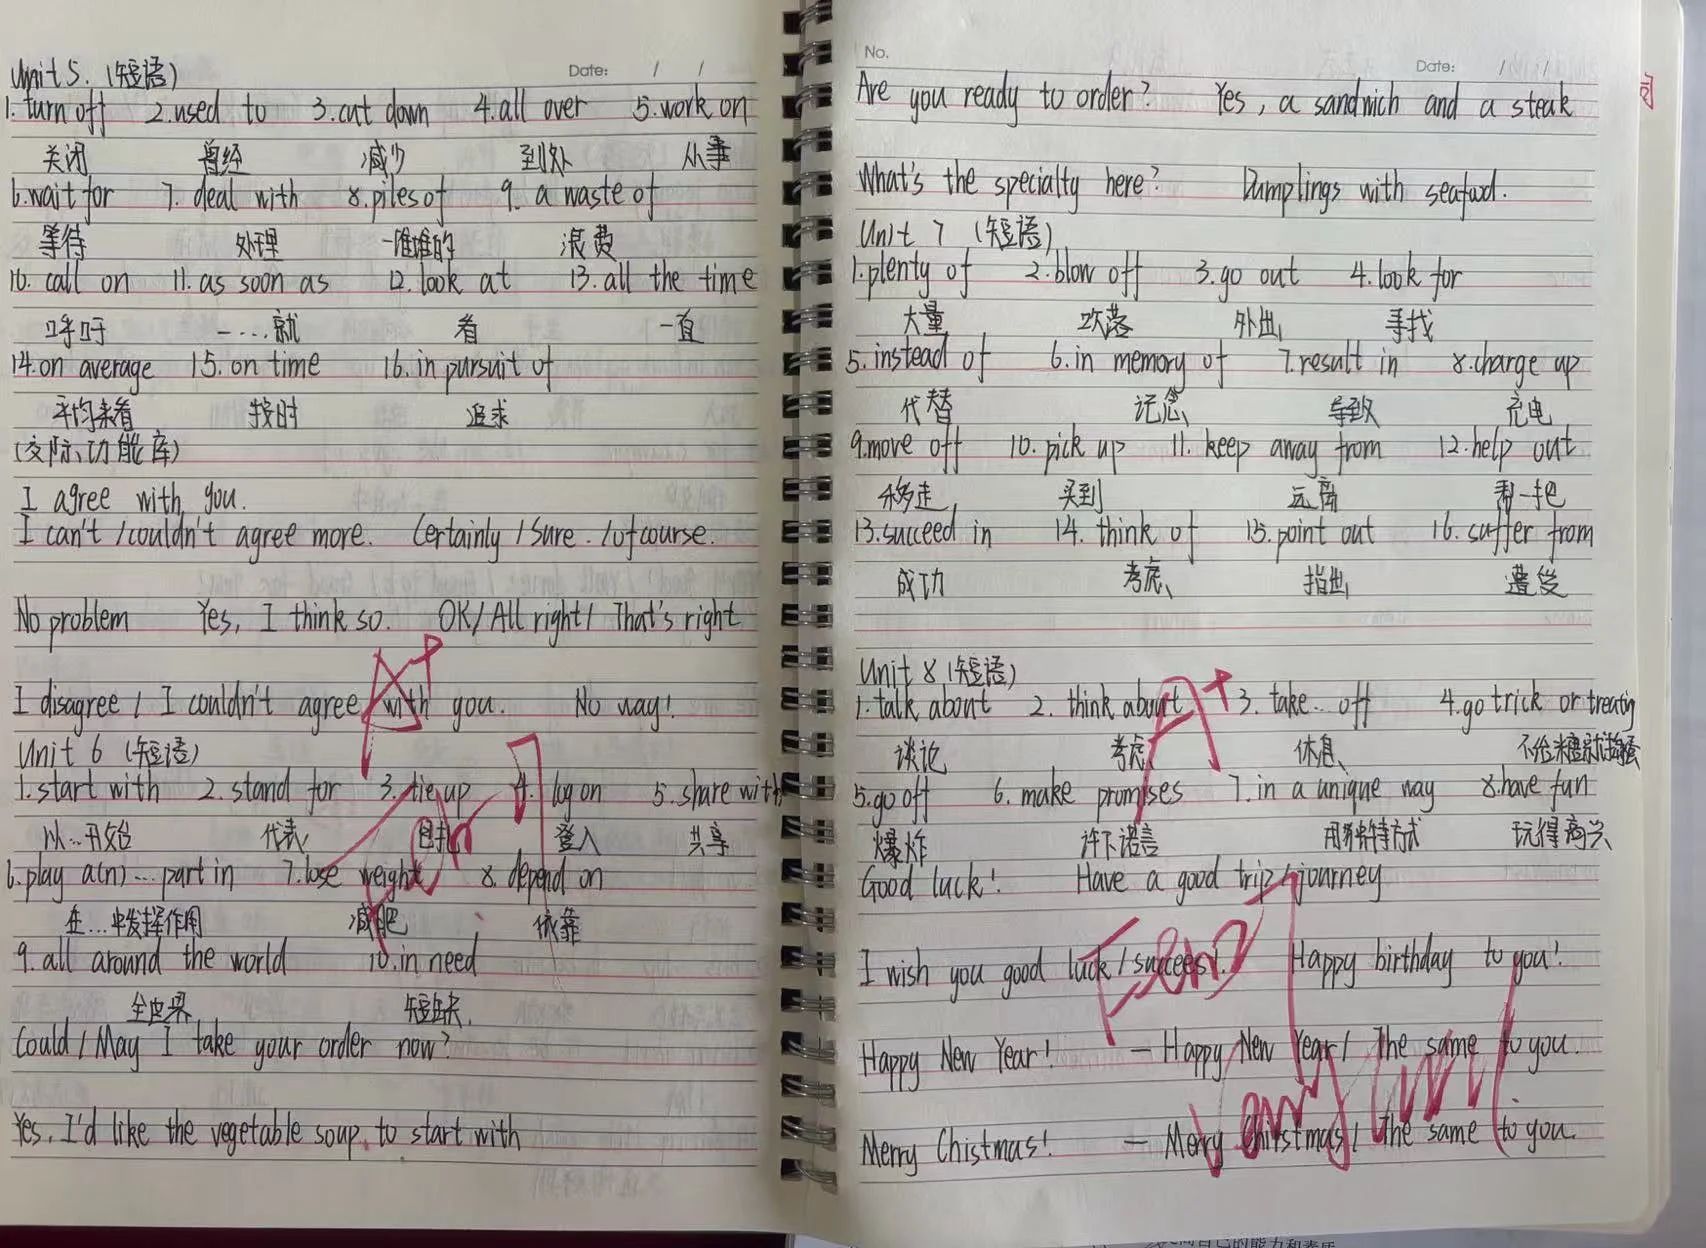 Unit 5. (短语)
Date: / /
1. turn off 2. used to 3. cut down 4. all over 5. work on
关闭 曾经 减少 到处 从事
6. wait for 7. deal with 8. piles of 9. a waste of
等待 处理 一堆堆的 浪费
10. call on 11. as soon as 12. look at 13. all the time
呼吁 一...就 看 一直
14. on average 15. on time 16. in pursuit of
平均来看 按时 追求
(交际功能库)
I agree with you.
I can't / couldn't agree more. Certainly / Sure. / of course.
No problem Yes, I think so. OK / All right / That's right
I disagree / I couldn't agree with you. No way!
A+
Unit 6 (短语)
1. start with 2. stand for 3. tie up 4. log on 5. share with
以...开始 代表 登入 共享
6. play a(n) ... part in 7. lose weight 8. depend on
在...中发挥作用 减肥 依靠
9. all around the world 10. in need
全世界 短缺
Could / May I take your order now?
Yes, I'd like the vegetable soup to start with
No.
Date: / /
Are you ready to order? Yes, a sandwich and a steak
What's the specialty here? Dumplings with seafood.
Unit 7 (短语)
1. plenty of 2. blow off 3. go out 4. look for
大量 吹落 外出 寻找
5. instead of 6. in memory of 7. result in 8. charge up
代替 记念 导致 充电
9. move off 10. pick up 11. keep away from 12. help out
移走 买到 远离 帮一把
13. succeed in 14. think of 15. point out 16. suffer from
成功 考虑 指出 遭受
Unit 8 (短语)
1. talk about 2. think about 3. take... off 4. go trick or treating
谈论 考虑 休息 不给糖就捣蛋
A+
5. go off 6. make promises 7. in a unique way 8. have fun
爆炸 许下诺言 用独特方式 玩得高兴
Good luck! Have a good trip / journey
I wish you good luck / success!. Happy birthday to you!
Happy New Year! — Happy New Year / The same to you.
Merry Chistmas! — Merry Chirstmas / The same to you.